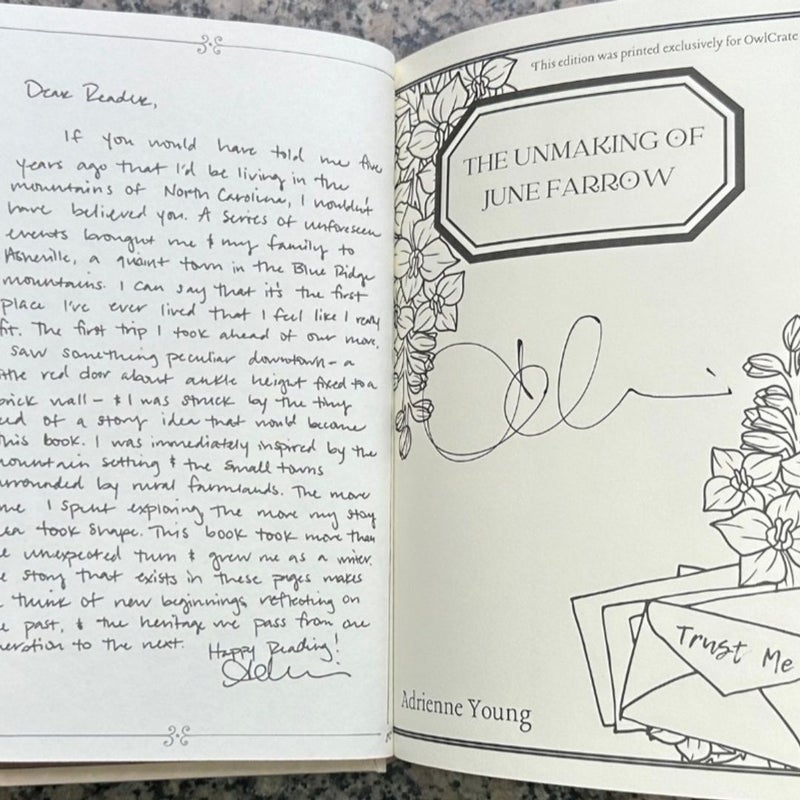 Dear Reader,
If you would have told me five
years ago that I'd be living in the
mountains of North Carolina, I wouldn't
have believed you. A series of unforeseen
events brought me & my family to
Asheville, a quaint town in the Blue Ridge
mountains. I can say that it's the first
place I've ever lived that I feel like I really
fit. The first trip I took ahead of our move,
saw something peculiar downtown - a
little red door about ankle height fixed to a
brick wall - & I was struck by the tiny
of a story idea that would become
this book. I was immediately inspired by the
mountain setting & the small towns
surrounded by rural farmlands. The more
I spent exploring, the more my story
took shape. This book took more than
unexpected turn & grew me as a writer.
story that exists in these pages makes
think of new beginnings, reflecting on
past, & the heritage we pass from one
generation to the next.
Happy Reading!
This edition was printed exclusively for OwlCrate
THE UNMAKING OF
JUNE FARROW
Trust Me
Adrienne Young